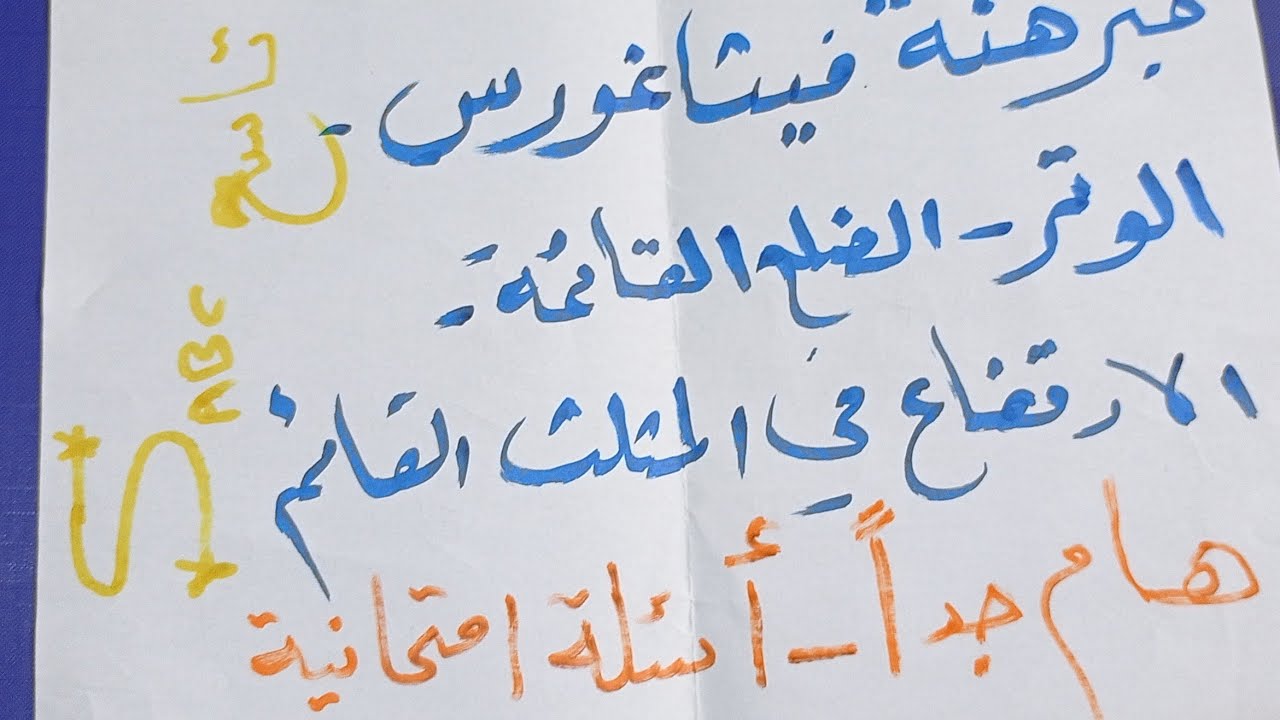 مبرهنة فيثاغورس -
الوتر - الضلع القائمة -
الارتفاع في المثلث القائم
هام جداً - أسئلة امتحانية
ABC